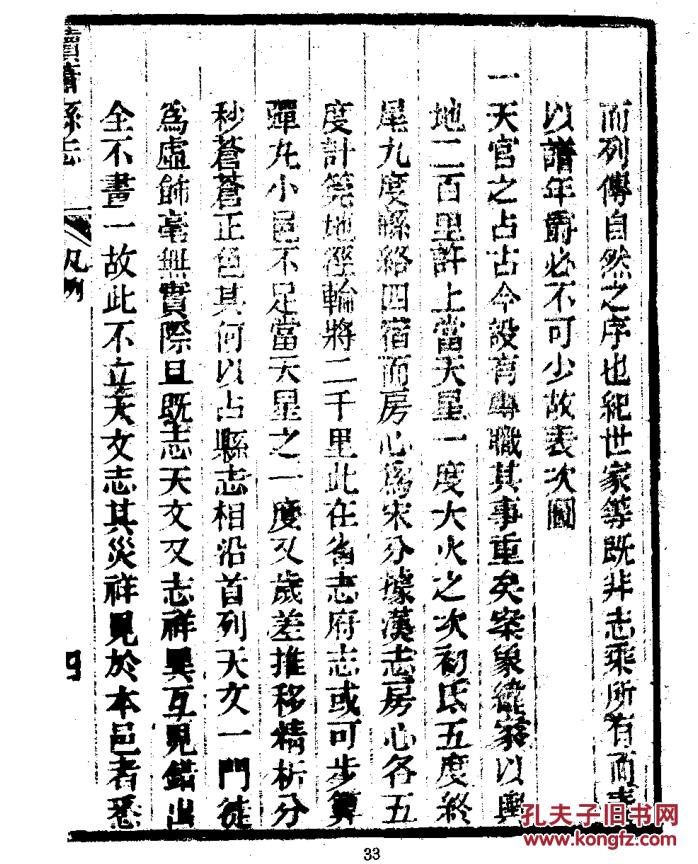 而列傳自然之序也紀世家等既非志乘所有而表
以譜年爵必不可少故表次圖
一天官之占古今設有專職其事重矣案象緯家以輿
地二百里許上當天星一度大火之次初氐五度終
尾九度緜絡四宿而房心爲宋分據漢志房心各五
度計筭地徑輪將二千里此在省志府志或可步算
彈丸小邑不足當天星之一度又歲差推移精析分
秒蒼蒼正色其何以占縣志相沿首列天文一門徒
爲虛飾毫無實際且既志天文又志祥異互見錯出
全不畫一故此不立天文志其災祥見於本邑者悉
續蕭縣志 凡例 四
孔夫子旧书网
www.kongfz.com
33